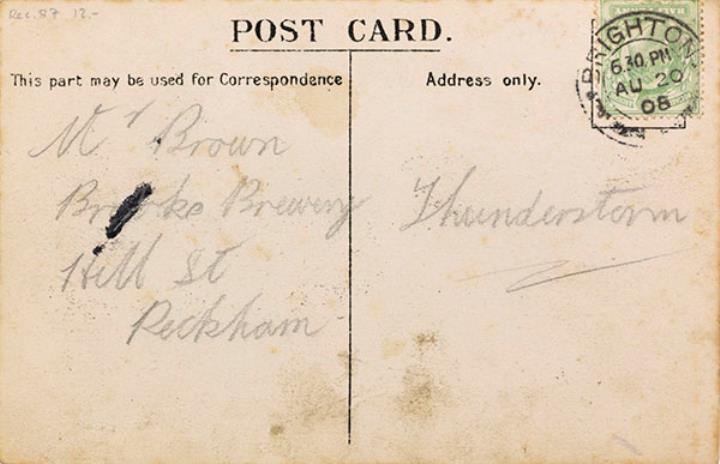 Rec. 87 12.-
POST CARD.
This part may be used for Correspondence
Address only.
BRIGHTON
6.30 PM
AU 20
08
Mr Brown
Brewery
Hill St
Peckham
Thunderstorm